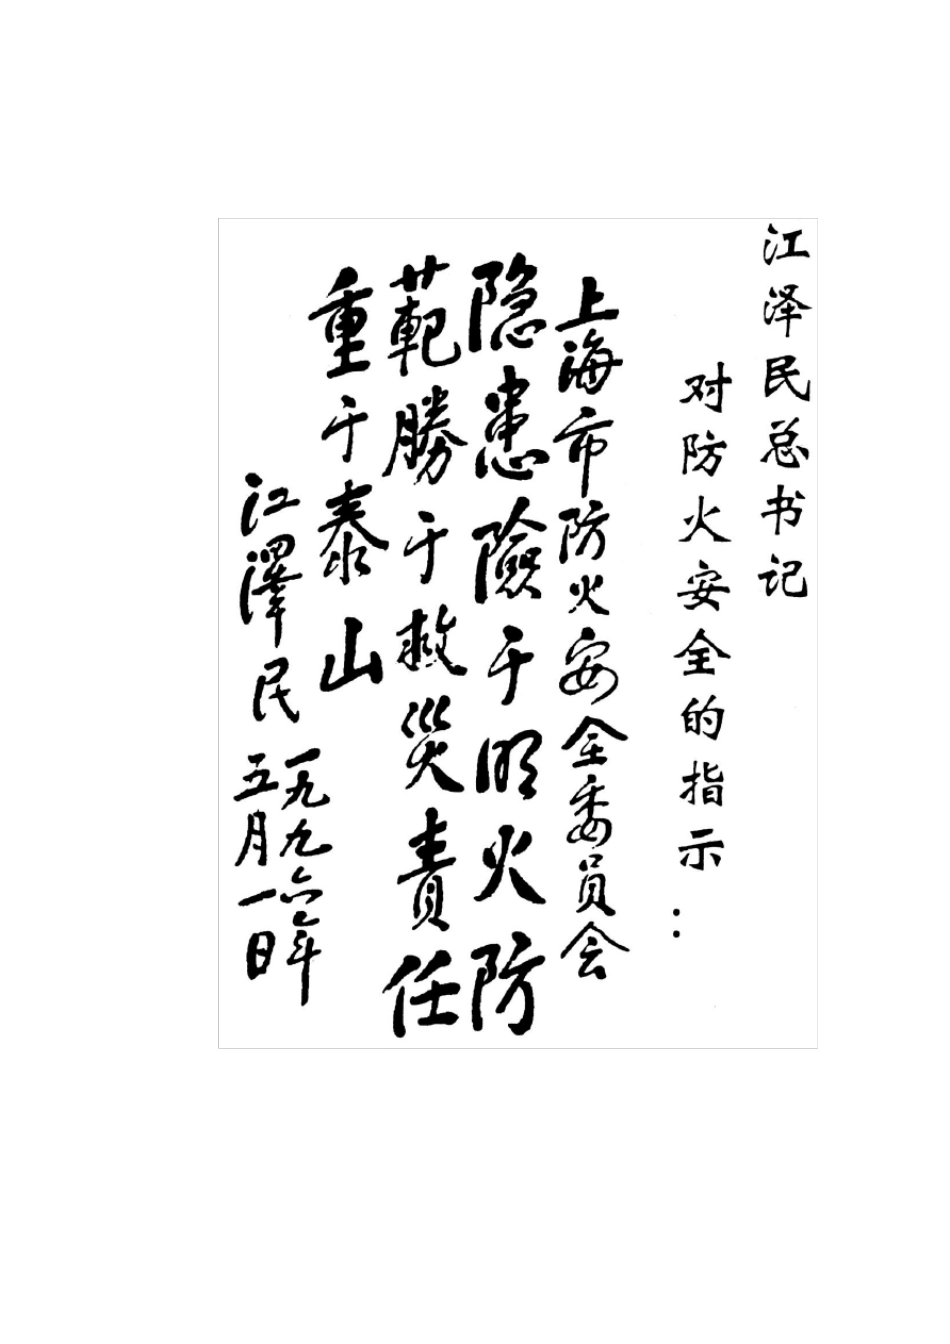 江泽民总书记
对防火安全的指示：
上海市防火安全委员会
隐患險于明火防
範勝于救災責任
重于泰山
江澤民
一九九六年
五月一日